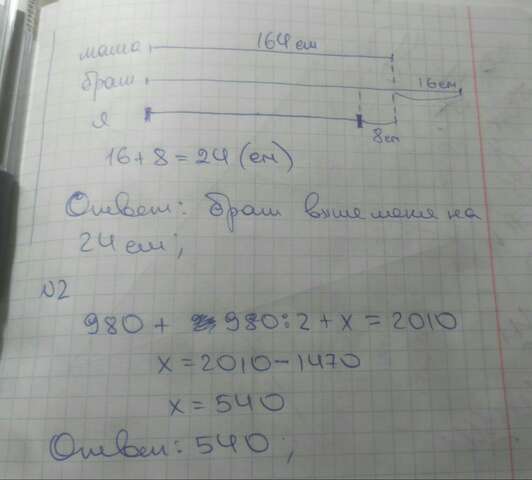 мама 164 см
брат 16 см
я 8 см
16 + 8 = 24 (см)
Ответ: брат выше меня на
24 см;
N2
980 + 980 : 2 + x = 2010
x = 2010 - 1470
x = 540
Ответ: 540;